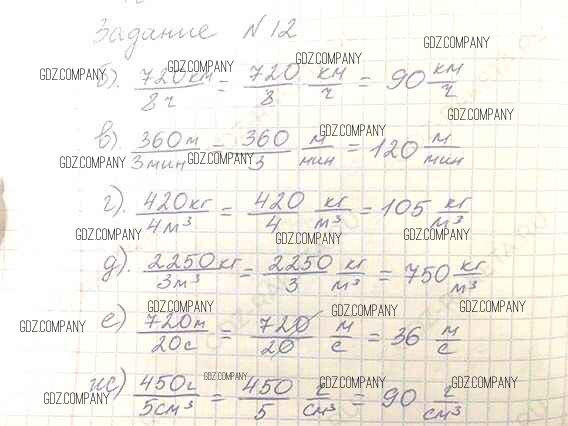 Задание №12
GDZ.COMPANY
GDZ.COMPANY GDZ.COMPANY
б). 720км/8ч = 720/8 км/ч = 90 км/ч
GDZ.COMPANY
в). 360м/3мин = 360/3 м/мин = 120 м/мин
GDZ.COMPANY
GDZ.COMPANY GDZ.COMPANY
г). 420кг/4м³ = 420/4 кг/м³ = 105 кг/м³
GDZ.COMPANY GDZ.COMPANY GDZ.COMPANY
д). 2250кг/3м³ = 2250/3 кг/м³ = 750 кг/м³
GDZ.COMPANY GDZ.COMPANY GDZ.COMPANY
е) 720м/20с = 720/20 м/с = 36 м/с
GDZ.COMPANY GDZ.COMPANY
ж) 450г/5см³ = 450/5 г/см³ = 90 г/см³
GDZ.COMPANY GDZ.COMPANY GDZ.COMPANY
GDZ.COMPANY